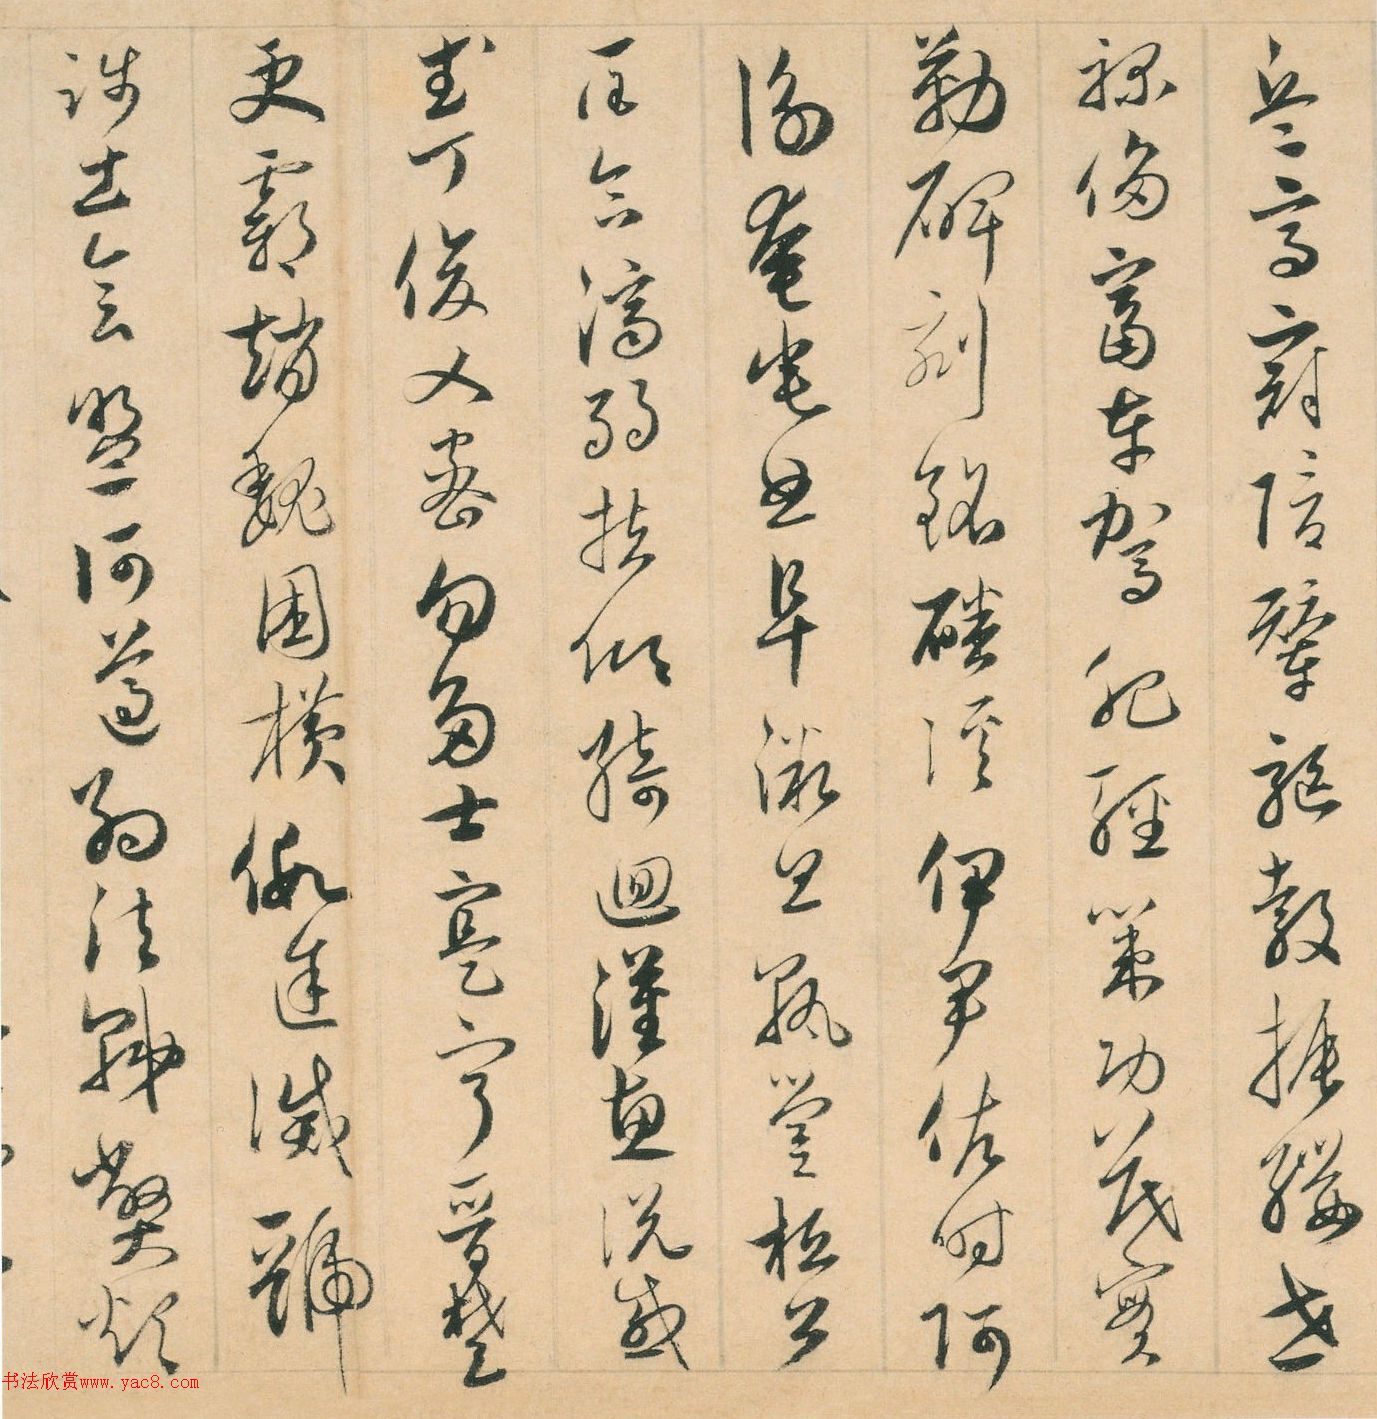 兵高冠陪輦驅轂振纓世
祿侈富車駕肥輕策功茂實
勒碑刻銘磻溪伊尹佐時阿
衡奄宅曲阜微旦孰營桓公
匡合濟弱扶傾綺迴漢惠說感
武丁俊乂密勿多士寔寧晉楚
更霸趙魏困橫假途滅虢
踐土會盟何遵約法韓弊煩
书法欣赏www.yac8.com